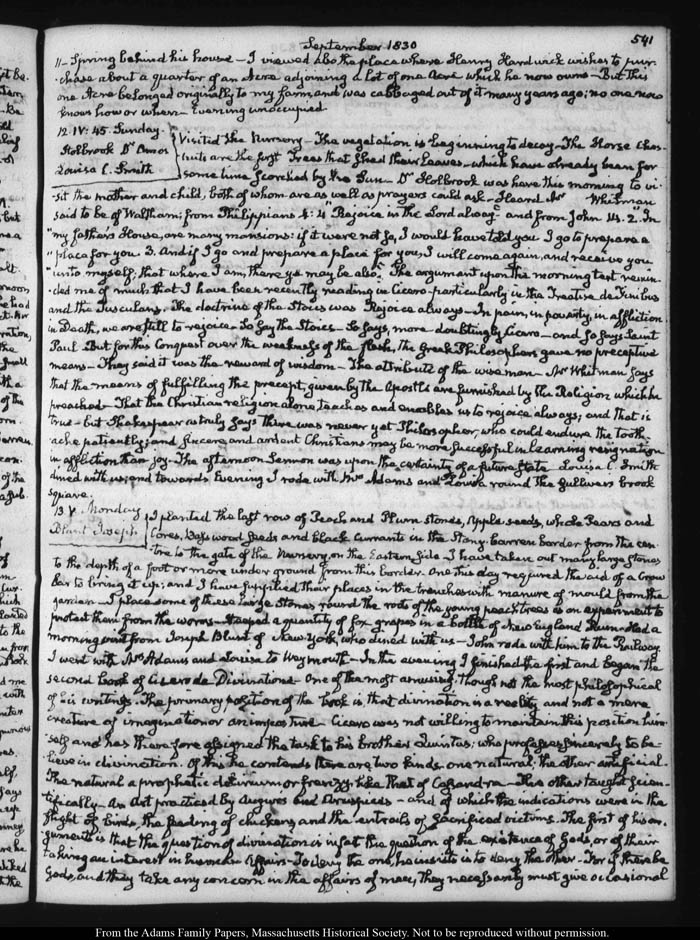 September 1830
541
11 - Spring behind his house - I viewed also the place where Henry Hardwick wishes to pur-
-chase about a quarter of an Acre adjoining a lot of one Acre which he now owns - But this
one Acre belonged originally to my farm, and was cabbaged out of it many years ago; no one now
knows how or when - Evening unoccupied
12. IV: 45. Sunday.
Holbrook Dr Amos
Louisa C. Smith
Visited the Nursery - The vegetation is beginning to decay - The Horse Ches-
nuts are the first Trees that shed their leaves - which have already been for
some time scorched by the Sun - Dr Holbrook was here this morning to vi-
-sit the mother and child, both of whom are as well as prayers could ask - Heard Mr Whitman
said to be of Waltham; from Philippians 4: 4 "Rejoice in the Lord alway" and from John 14. 2. "In
"my father's House, are many mansions: if it were not so, I would have told you I go to prepare a
"place for you 3. And if I go and prepare a place for you, I will come again, and receive you
"unto myself, that where I am, there ye may be also." The argument upon the morning text remin-
-ded me of much that I have been recently reading in Cicero - particularly in the Treatise de Finibus
and the Tusculans. The doctrine of the Stoics was Rejoice always - In pain, in poverty, in affliction
in Death, we are still to rejoice - So say the Stoics - So says, more doubtingly Cicero - and so says Saint
Paul - But for this Conquest over the weakness of the flesh, the Greek Philosophers gave no preceptive
means - They said it was the reward of wisdom - The attribute of the wise man - Mr Whitman says
that the means of fulfilling the precept, given by the Apostle are furnished by the Religion which he
preached - That the Christian religion alone teaches and enables us to rejoice always; and that is
true - but Shakespear as truly says There was never yet Philosopher, who could endure the tooth-
ache patiently; and sincere and ardent Christians may be more successful in learning resignation
in affliction than joy. The afternoon Sermon was upon the certainty of a future state Louisa C. Smith
dined with us; and towards Evening I rode with Mrs Adams and Louisa round the Gulliver brook
square.
13. V. Monday
Blunt Joseph
I planted the last row of Peach and Plum stones, Apple seeds, whole Pears and
Cores, Bass wood seeds and black Currants in the Stony barren border from the cen-
tre to the gate of the Nursery, on the Eastern side I have taken out many large stones
to the depth of a foot or more under ground from this border. One this day required the aid of a Crow
bar to bring it up; and I have supplied their places in the trenches with manure of mould from the
garden - I place some of these large Stones round the roots of the young peach trees as an experiment to
protect them from the worms - Steeped a quantity of fox grapes in a bottle of New England Rum - Had a
morning visit from Joseph Blunt of New York, who dined with us - John rode with him to the Railway.
I went with Mrs Adams and Louisa to Weymouth - In the evening I finished the first and began the
second book of Cicero de Divinatione - One of the most amusing, though not the most philosophical
of his writings. The primary position of the book is that divination is a reality and not a mere
creature of imagination or an imposture - Cicero was not willing to maintain this position him-
-self and has therefore assigned the task to his brother Quintus: who professes sincerely to be-
lieve in divination. Of this he contends there are two kinds one natural, the other artificial.
The natural a prophetic delirium or frenzy, like that of Cassandra - The other taught scien-
-tifically - an Art practised by Augurs and Aruspices - and of which the indications were in the
flight of birds, the feeding of chickens and the entrails of sacrificed victims. The first of his ar-
guments is that the question of divination is in fact the question of the existence of Gods, or of their
taking an interest in human Affairs - To deny the one, he insists is to deny the other - For if there be
Gods, and they take any concern in the affairs of men, they necessarily must give occasional
From the Adams Family Papers, Massachusetts Historical Society. Not to be reproduced without permission.